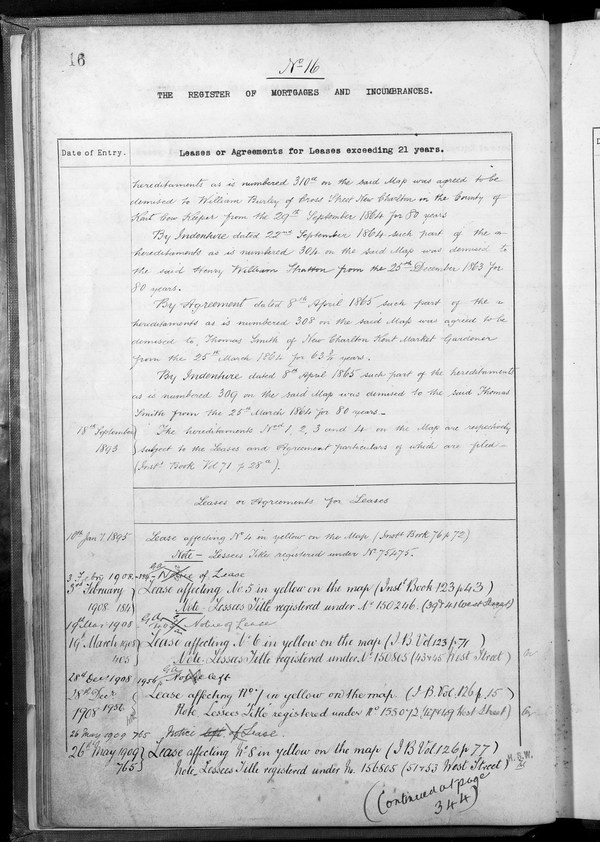 16
No 16
THE REGISTER OF MORTGAGES AND INCUMBRANCES.
Date of Entry.
Leases or Agreements for Leases exceeding 21 years.
hereditaments as is numbered 310a on the said Map was agreed to be
demised to William Burley of Cross Street New Charlton in the County of
Kent Cow Keeper from the 29th September 1864 for 80 years
By Indenture dated 22nd September 1864 such part of the
hereditaments as is numbered 304 on the said Map was demised to
the said Henry William Stratton from the 25th December 1863 for
80 years.
By Agreement dated 8th April 1865 such part of the
hereditaments as is numbered 308 on the said Map was agreed to be
demised to Thomas Smith of New Charlton Kent Market Gardener
from the 25th March 1864 for 63¼ years.
By Indenture dated 8th April 1865 such part of the hereditaments
as is numbered 309 on the said Map was demised to the said Thomas
Smith from the 25th March 1864 for 80 years
18th September 1893
The hereditaments Nos 1, 2, 3 and 4 on the Map are respectively
subject to the Leases and Agreement particulars of which are filed
(Inst. Book Vol 71 p 28).
Leases or Agreements for Leases
10th Jany 1895
Lease affecting No 4 in yellow on the Map (Inst. Book 76 p 72)
Note - Lessees Title registered under No 75475.
3 Feby 1908 - 184 Notice of Lease
3rd February 1908 184
Lease affecting No 5 in yellow on the map (Inst. Book 123 p 43)
Note - Lessees Title registered under No 150246. (39 & 41 West Street)
19th Mar 1908 405 Notice of Lease
19th March 1908 405
Lease affecting No 6 in yellow on the map (I.B. Vol 123 p. 74)
Note Lessees Title registered under No 150805 (43 & 45 West Street)
28th Decr 1908 1956 Notice left
18th Decr 1908 1956
Lease affecting No 7 in yellow on the map (I.B. Vol. 126 p. 15)
Note Lessees Title registered under No 155072 (47 & 49 West Street)
26 May 1909 765 Notice left of Lease.
26th May 1909 765
Lease affecting No 8 in yellow on the map (I B Vol 126 p 77)
Note, Lessees Title registered under No. 156805 (51 & 53 West Street)
(Continued at page
344)